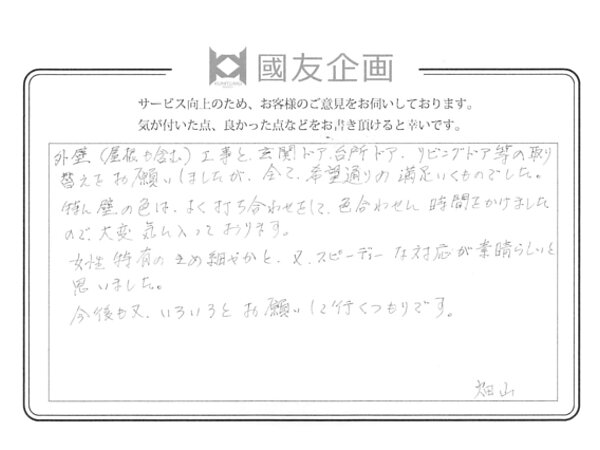 國友企画
サービス向上のため、お客様のご意見をお伺いしております。
気が付いた点、良かった点などをお書き頂けると幸いです。
外壁(屋根も含む)工事と、玄関ドア、台所ドア、リビングドア等の取り
替えをお願いしましたが、全て、希望通りの満足いくものでした。
特に壁の色は、よく打ち合わせをして、色合わせに時間をかけました
ので、大変気に入っております。
女性特有のきめ細やかと、又、スピーディーな対応が素晴らしいと
思いました。
今後も又、いろいろとお願いして行くつもりです。
畑山